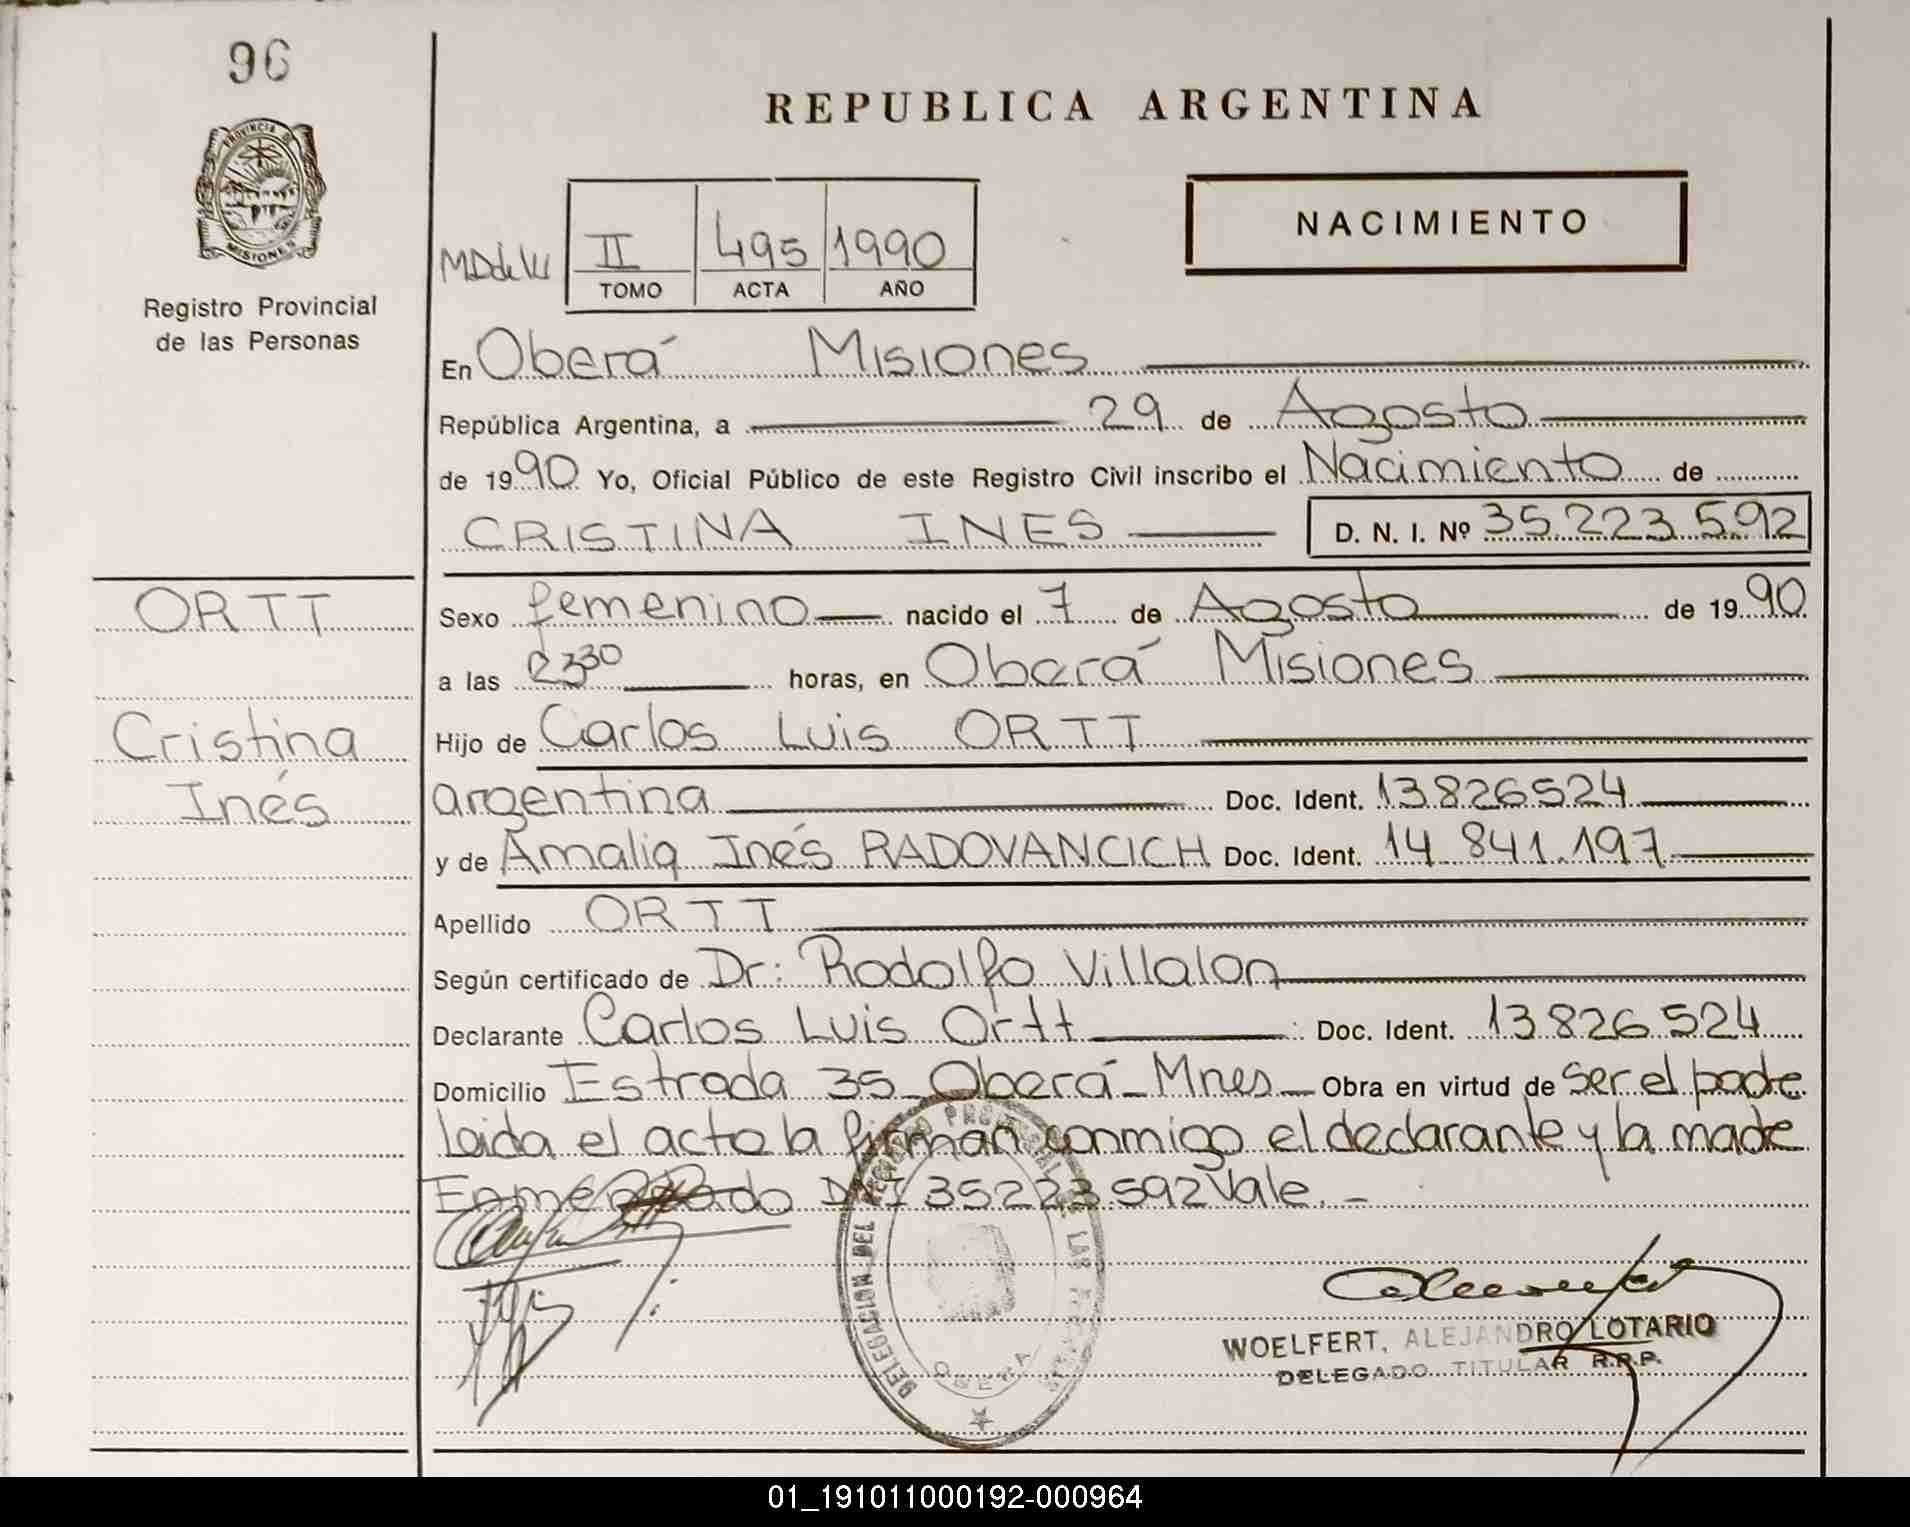 96
PROVINCIA DE
MISIONES
Registro Provincial
de las Personas
REPUBLICA ARGENTINA
NACIMIENTO
II 495 1990
TOMO ACTA AÑO
En Oberá Misiones
República Argentina, a 29 de Agosto
de 1990 Yo, Oficial Público de este Registro Civil inscribo el Nacimiento de
CRISTINA INES D. N. I. Nº 35.223.592
ORTT
Cristina
Inés
Sexo femenino nacido el 7 de Agosto de 1990
a las 2330 horas, en Oberá Misiones
Hijo de Carlos Luis ORTT
argentina Doc. Ident. 13.826.524
y de Amalia Inés RADOVANCICH Doc. Ident. 14.841.197
Apellido ORTT
Según certificado de Dr: Rodolfo Villalon
Declarante Carlos Luis Ortt Doc. Ident. 13.826.524
Domicilio Estrada 35 Oberá - Mnes - Obra en virtud de ser el padre
Leida el acta la firman conmigo el declarante y la madre
Enmendado DNI 35223.592 Vale. -
DELEGACION DEL REGISTRO PROVINCIAL DE LAS PERSONAS
OBERA
WOELFERT, ALEJANDRO LOTARIO
DELEGADO TITULAR R.R.P.
01_191011000192-000964